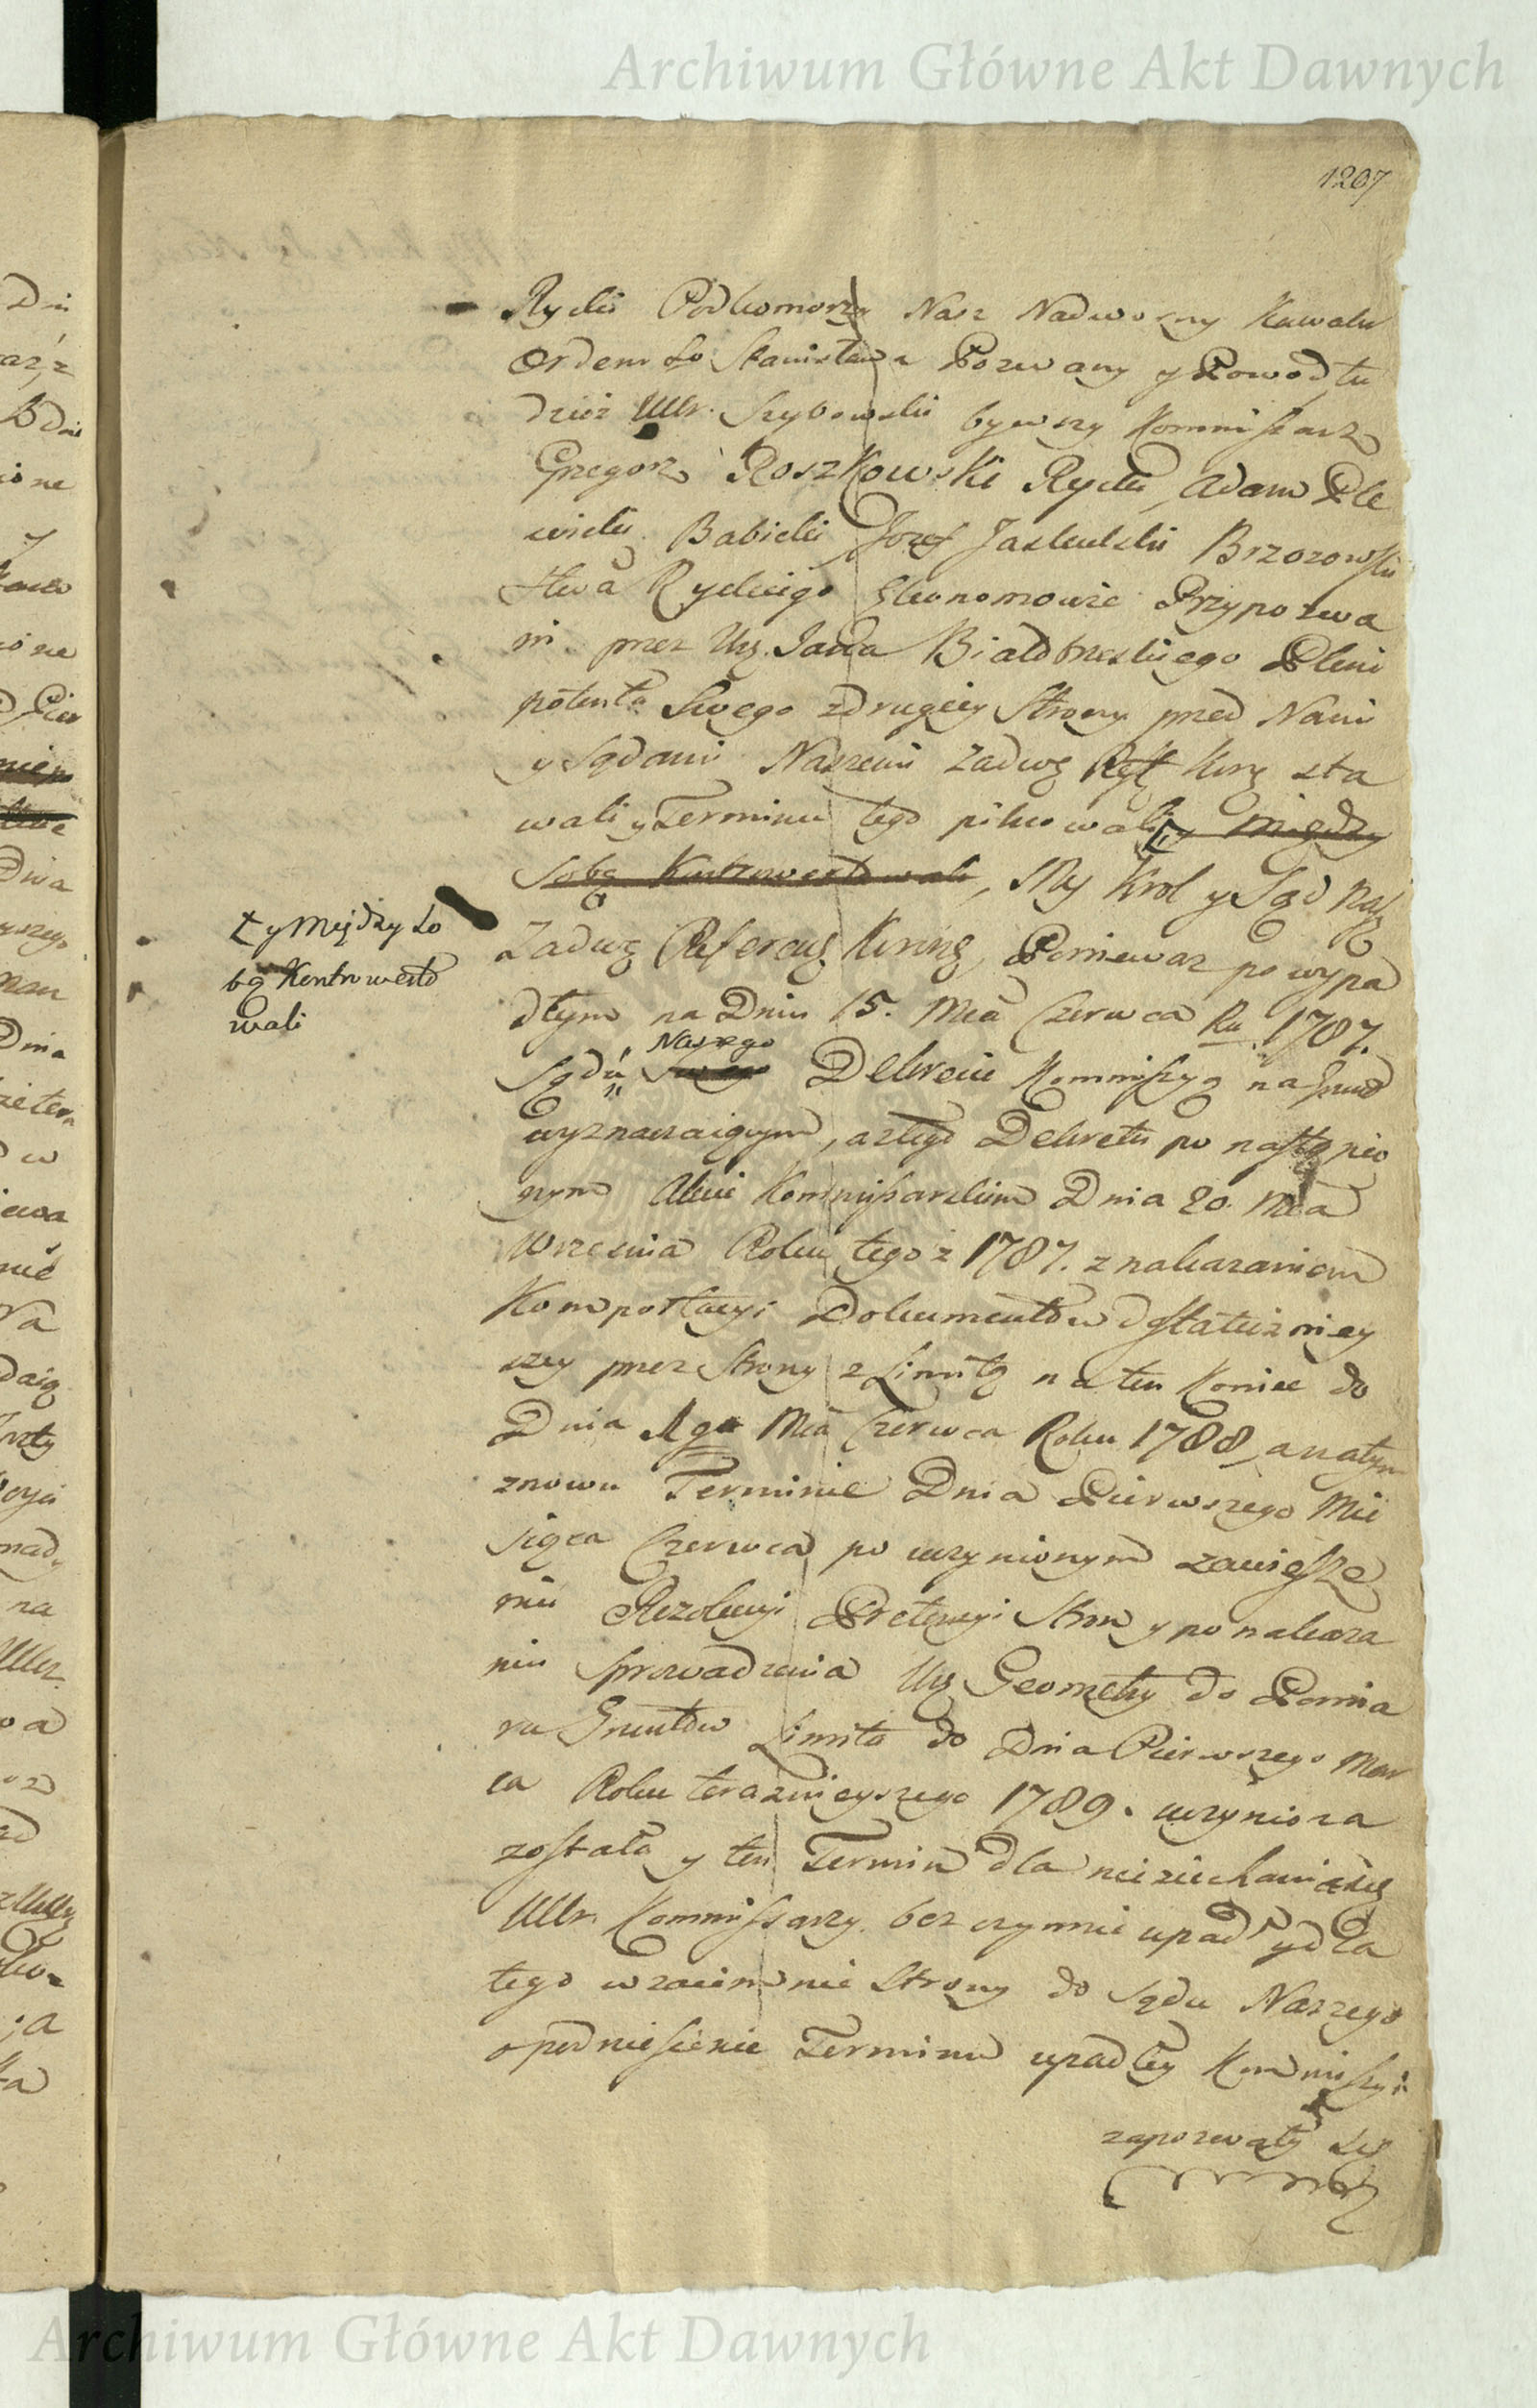 Archiwum Główne Akt Dawnych
1207
Rycki Podkomorzy Nasz Nadworny Kawaler
Orderu So Stanisława Pozwany y Powod tu
dzież Ur. Szybowski bywszy Kommissarz
Grzegorz Roszkowski Rycki, Adam Ple
wicki Babicki Jozef Jaskulski Brzozowski
stwa Ryckiego Ekonomowie Przypozwa
ni przez Ur. Jana Białobrzeskiego Pleni
potenta Swego z drugiey Strony przed Nami
y Sądami Naszemi Zadwe Kne sta
wali y Terminu tego pilnowali y między
Sobą Kontrowertowali, My Krol y Sąd Nasz
Ty Między So
bą Kontrowerto
wali
Zadwe Referen Kinne, Ponieważ po wypa
dłym na Dniu 15. Mca Czerwca Ru. 1787.
Naszego
Sądu Dekrecie Kommissyą na Grunt
wyznaczaiącym, a z tego Dekretu po nastąpio
nym Akcie Kommissarskim Dnia 20. Mca
Wrzesnia Roku tegoż 1787. z nakazaniem
Komportacyi Dokumentow dostateczniey
szey przez Strony z Limitą na ten Koniec do
Dnia 1go Mca Czerwca Roku 1788, a na tym
znowu Terminie Dnia Pierwszego Mie
siąca Czerwca po uczynionym zawiesze
niu Rezolucyi Pretensyi Stron y po nakaza
niu Sprowadzenia Ur Geometry do Pomia
ru Gruntow Limita do Dnia Pierwszego Mar
ca Roku teraznieyszego 1789. uczyniona
została y ten Termin dla nieziechania się
Ur. Kommissarzy bezczynnie upadł y dla
tego wzaiemnie Strony do Sądu Naszego
o podniesienie Terminu upadłey Kommissyi
zapozwały się
Archiwum Główne Akt Dawnych